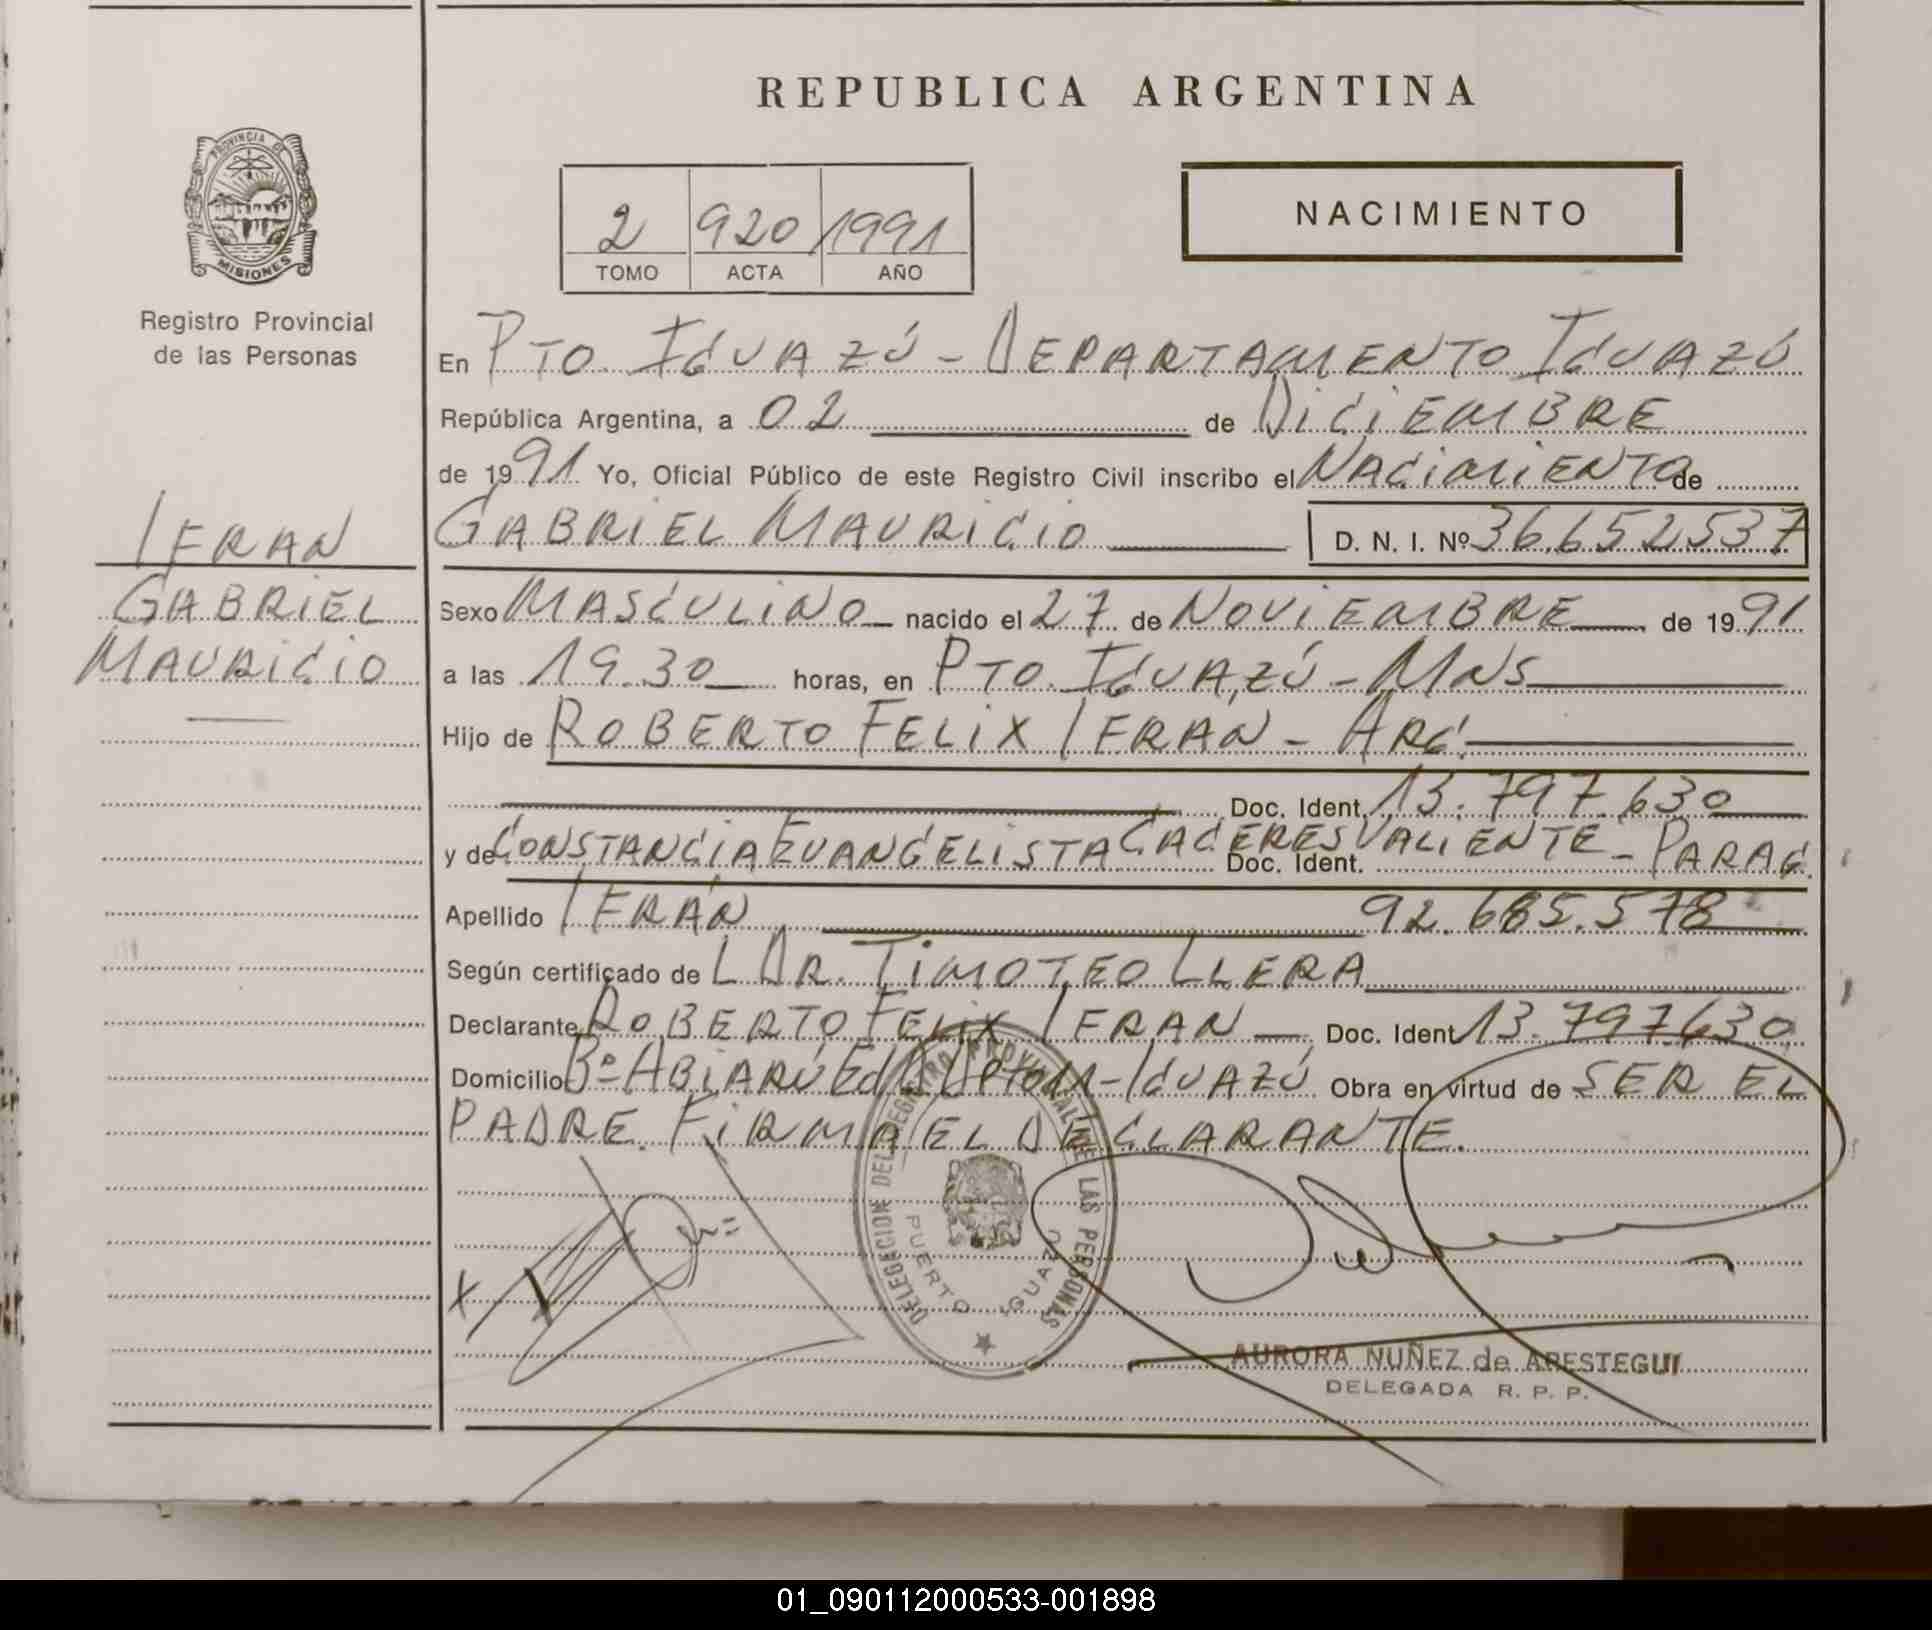 REPUBLICA ARGENTINA
PROVINCIA DE
MISIONES
Registro Provincial
de las Personas
NACIMIENTO
2 920 1991
TOMO ACTA AÑO
En PTO. IGUAZÚ - DEPARTAMENTO IGUAZÚ
República Argentina, a 02 de DICIEMBRE
de 1991 Yo, Oficial Público de este Registro Civil inscribo el NACIMIENTO de
IFRAN
GABRIEL MAURICIO D. N. I. Nº 36.652.537
GABRIEL
MAURICIO
Sexo MASCULINO nacido el 27 de NOVIEMBRE de 1991
a las 19.30 horas, en PTO. IGUAZÚ - MNS
Hijo de ROBERTO FELIX IFRAN - ARG.
Doc. Ident. 13.797.630
y de CONSTANCIA EVANGELISTA CACERES VALIENTE - PARAG.
Doc. Ident.
Apellido IFRÁN 92.685.578
Según certificado de L DR. TIMOTEO LLERA
Declarante ROBERTO FELIX IFRAN Doc. Ident 13.797.630
Domicilio Bº ABIARÚ - IGUAZÚ Obra en virtud de SER EL
PADRE. FIRMA EL DECLARANTE.
DELEGACION DEL REGISTRO PROVINCIAL DE LAS PERSONAS
PUERTO IGUAZU
X
AURORA NUÑEZ de ARESTEGUI
DELEGADA R. P. P.
01_090112000533-001898